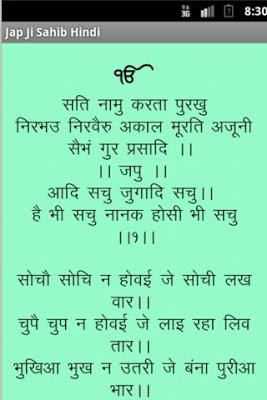 3G 8:30
Jap Ji Sahib Hindi
ੴ
सति नामु करता पुरखु
निरभउ निरवैरु अकाल मूरति अजूनी
सैभं गुर प्रसादि ।।
।। जपु ।।
आदि सचु जुगादि सचु।।
है भी सचु नानक होसी भी सचु
।।१।।
सोचौ सोचि न होवई जे सोची लख
वार।।
चुपै चुप न होवई जे लाइ रहा लिव
तार।।
भुखिआ भुख न उतरी जे बंना पुरीआ
भार।।